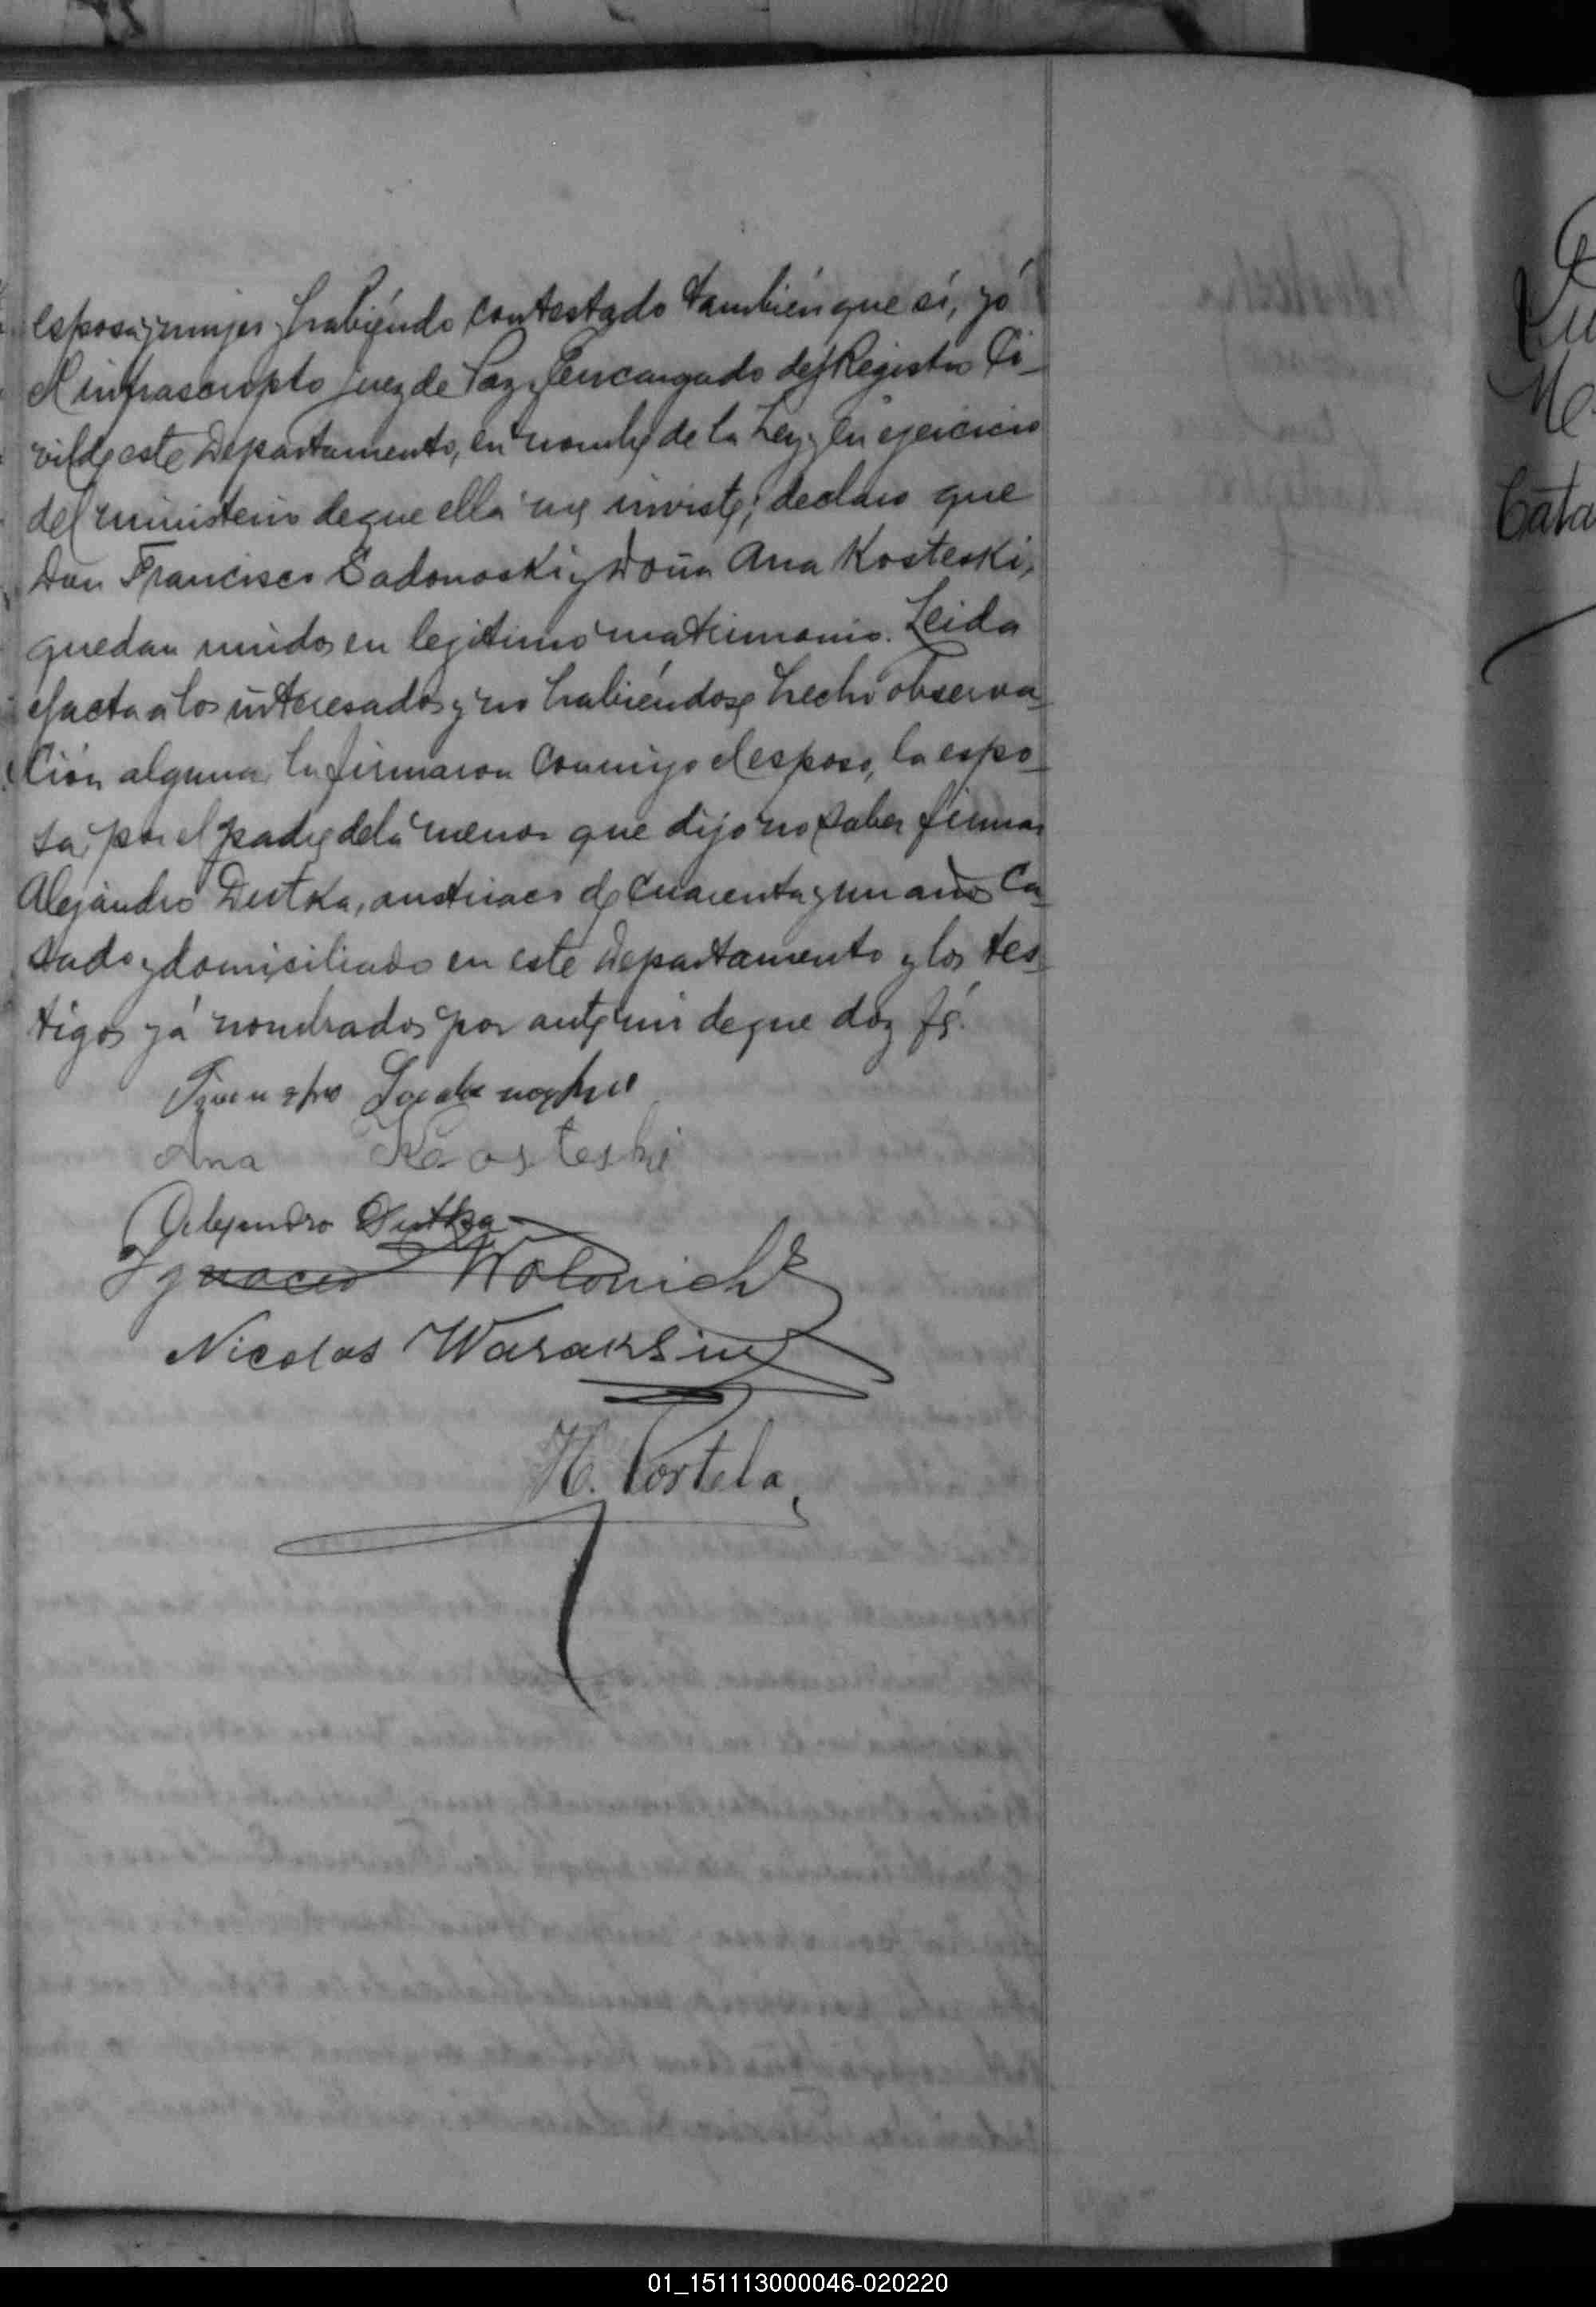 esposa y mujer y habiéndo contestado también que sí, yó
el infrascripto Juez de Paz y Encargado del Registro Ci-
vil de este Departamento, en nombre de la Ley y en ejercicio
del ministerio de que ella me inviste; declaro que
Don Francisco Sadonoski y Doña Ana Kosteski,
quedan unidos en legitimo matrimonio. Leida
el acta a los interesados y no habiéndose hecho observa-
ción alguna, la firmaron conmigo el esposo, la espo-
sa, por el padre de la menor que dijo no saber firmar
Alejandro Dutka, austriaco de cuarenta y un años ca-
sado y domiciliado en este Departamento y los tes-
tigos yá nombrados por ante mi de que doy fé.
Ana Kosteski
Alejandro Dutka
Ignacio Wolonich
Nicolas
H. Portela
Cata
01_151113000046-020220